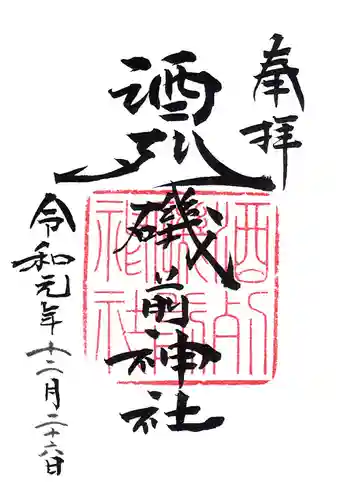 奉拝
酒列
磯前神社
令和元年十二月二十六日
酒列
磯前
神社